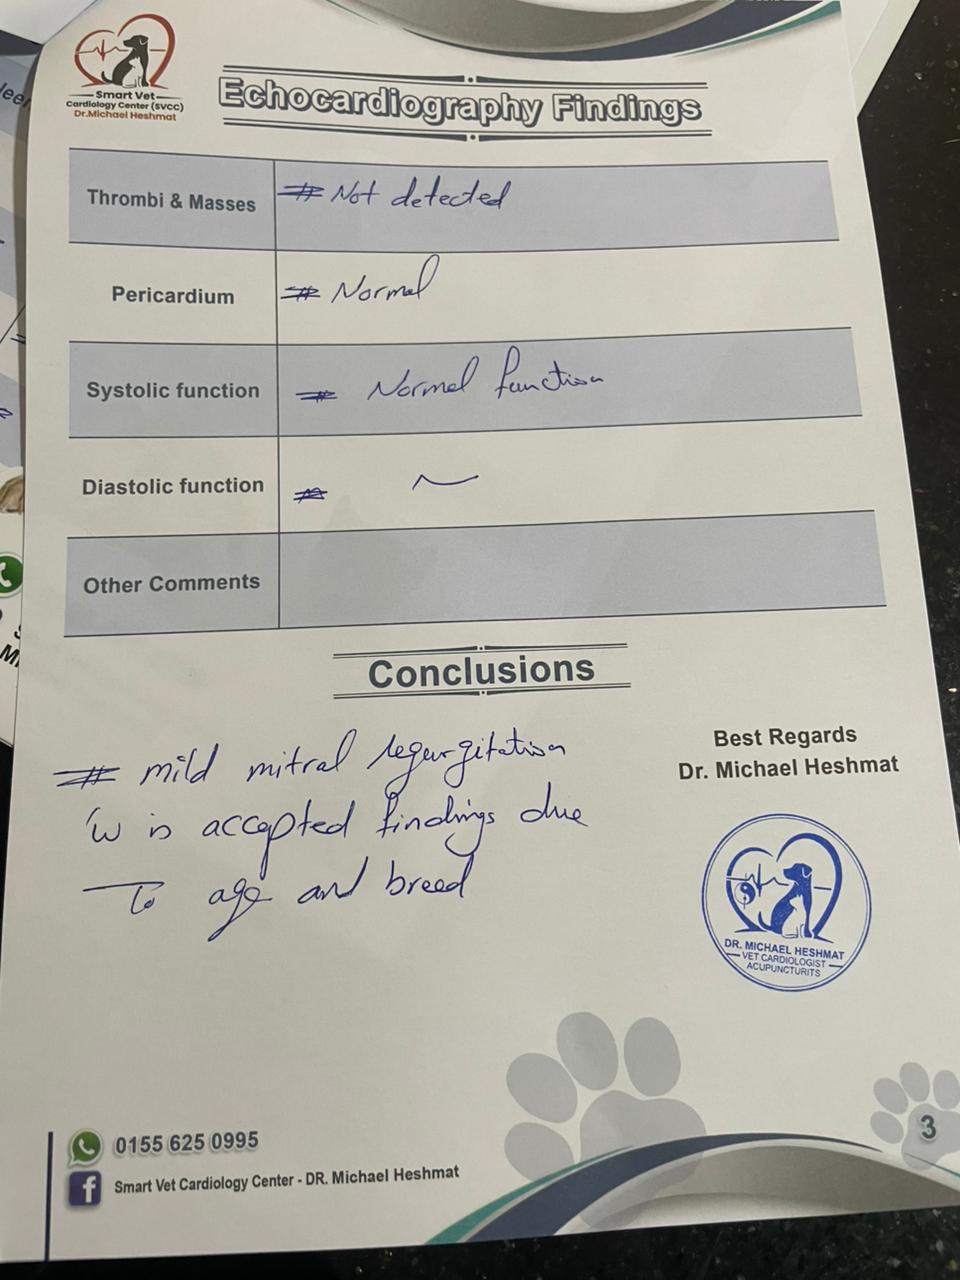 Smart Vet
Cardiology Center (SVCC)
Dr.Michael Heshmat
Echocardiography Findings
Thrombi & Masses # Not detected
Pericardium # Normal
Systolic function # Normal function
Diastolic function # ~
Other Comments
Conclusions
# mild mitral regurgitation
w is accepted findings due
To age and breed
Best Regards
Dr. Michael Heshmat
DR. MICHAEL HESHMAT
VET CARDIOLOGIST
ACUPUNCTURITS
0155 625 0995
Smart Vet Cardiology Center - DR. Michael Heshmat
3